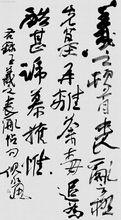 羲之頓首喪亂之極
先墓再離荼毒追惟
酷甚號慕摧絕
王羲之喪亂帖句